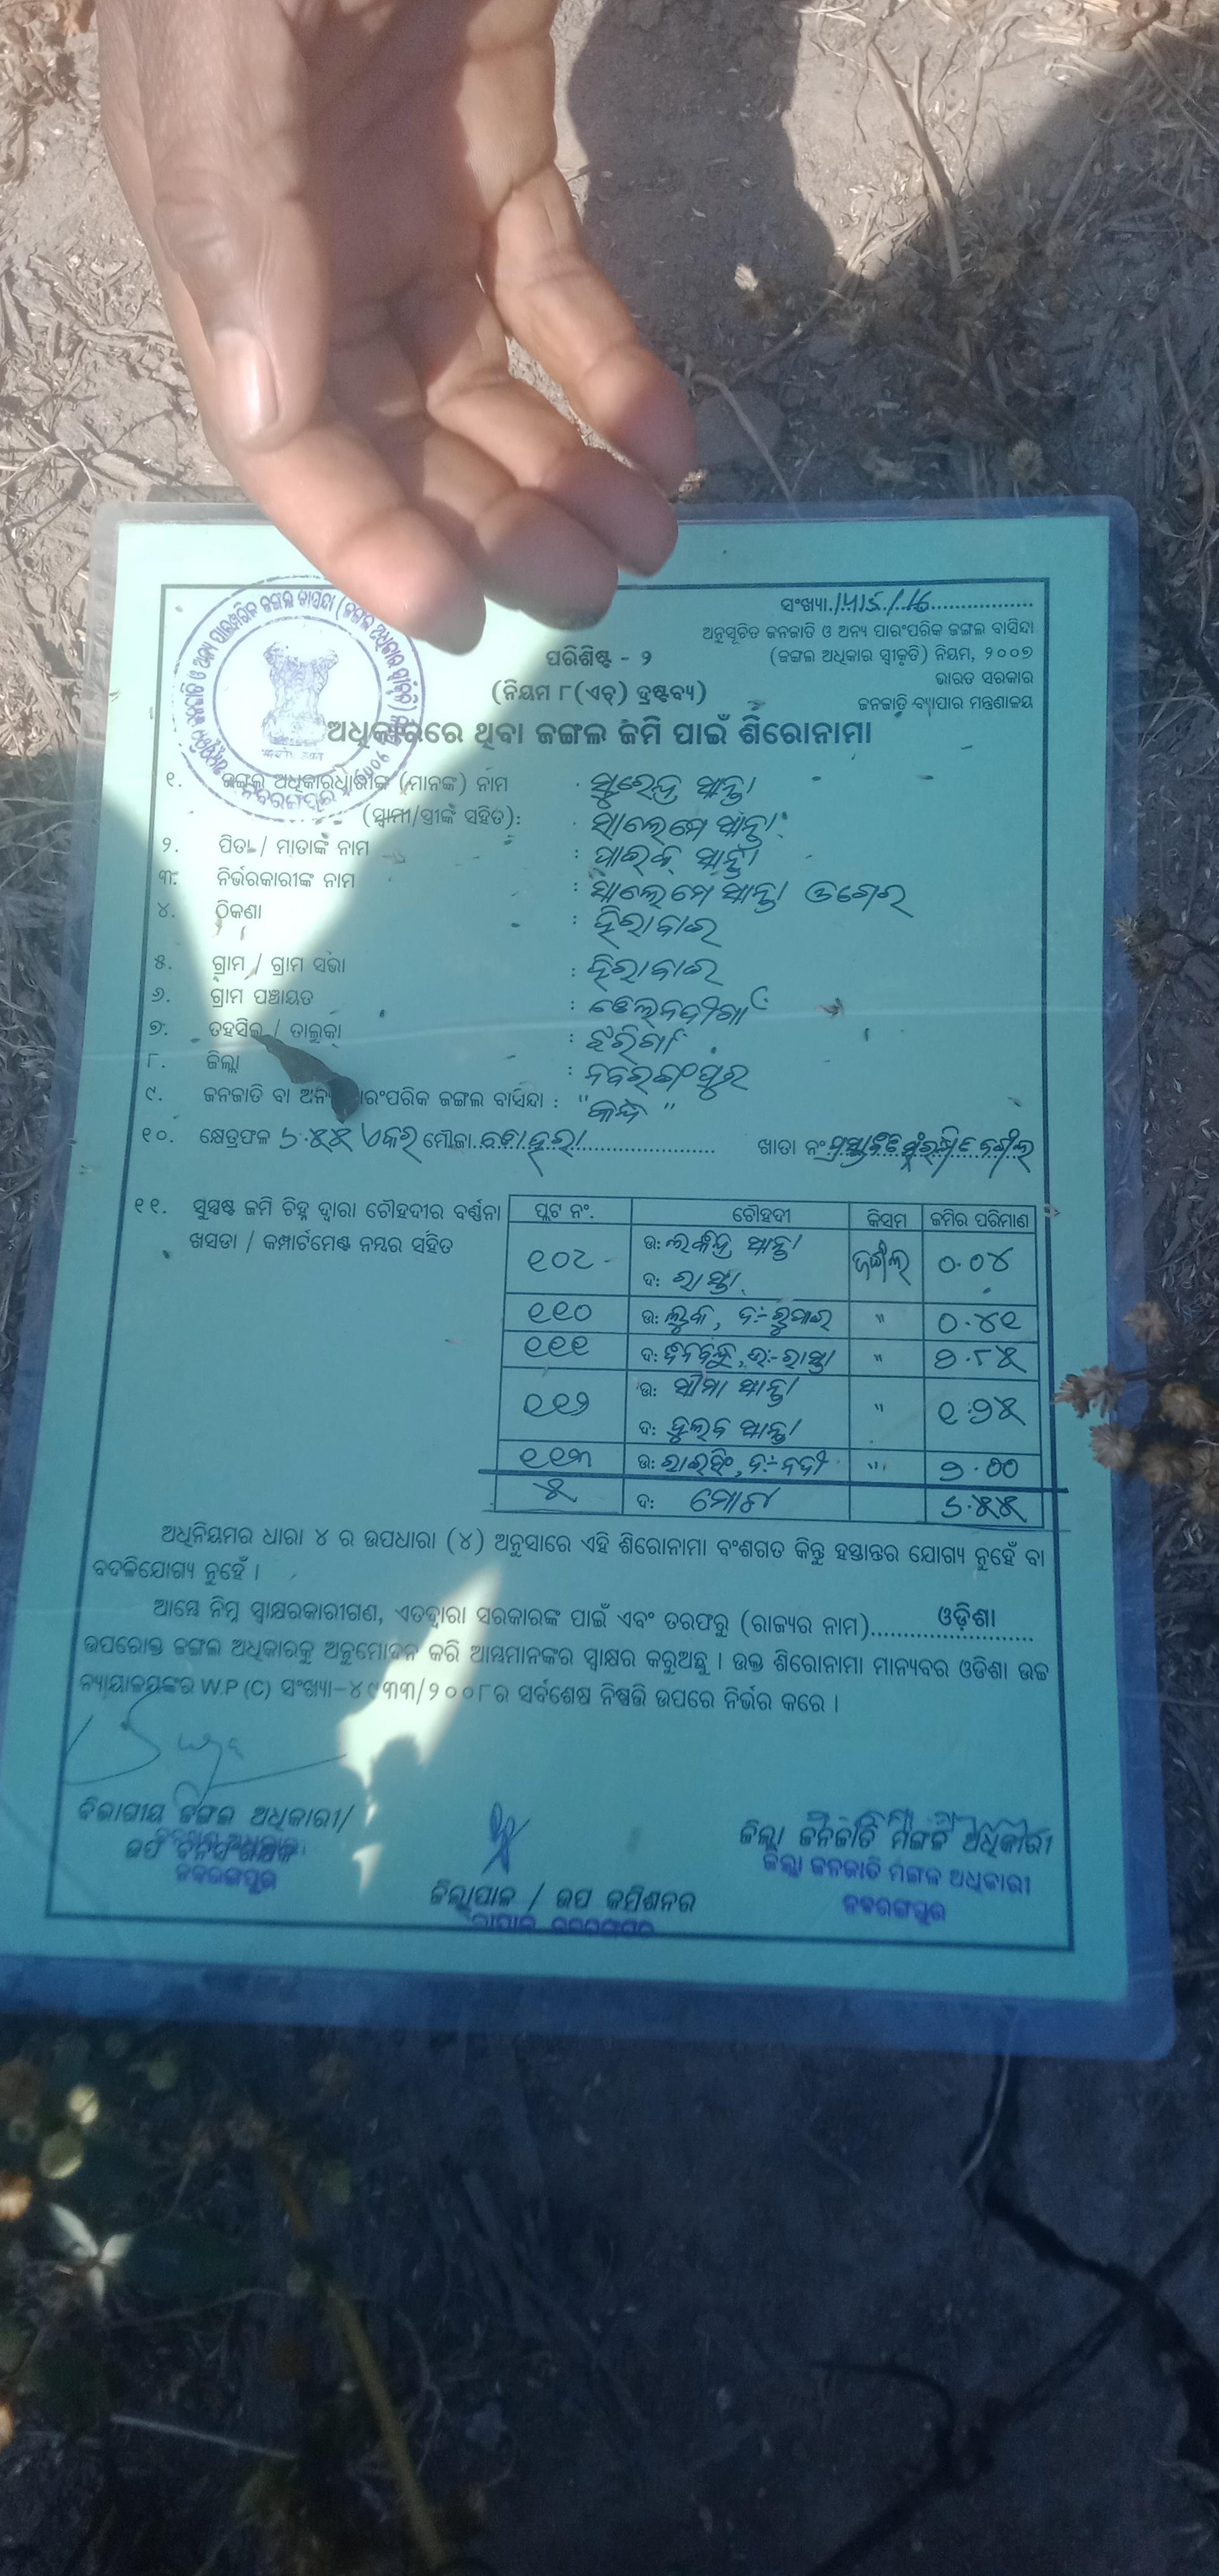 ସଂଖ୍ୟା.
ଅନୁସୂଚିତ ଜନଜାତି ଓ ଅନ୍ୟ ପାରଂପରିକ ଜଙ୍ଗଲ ବାସିନ୍ଦା
(ଜଙ୍ଗଲ ଅଧିକାର ସ୍ୱୀକୃତି) ନିୟମ, ୨୦୦୭
ଭାରତ ସରକାର
ଜନଜାତି ବ୍ୟାପାର ମନ୍ତ୍ରଣାଳୟ
ପରିଶିଷ୍ଟ - ୨
(ନିୟମ ୮(ଏଚ୍) ଦ୍ରଷ୍ଟବ୍ୟ)
ଅଧିକାରରେ ଥିବା ଜଙ୍ଗଲ ଜମି ପାଇଁ ଶିରୋନାମା
୧. ଜଙ୍ଗଲ ଅଧିକାରଧାରୀଙ୍କ (ମାନଙ୍କ) ନାମ : ସୁରେନ୍ଦ୍ର ସାନ୍ତା
(ସ୍ୱାମୀ/ସ୍ତ୍ରୀଙ୍କ ସହିତ): ସାଲେମେ ସାନ୍ତା
୨. ପିତା / ମାତାଙ୍କ ନାମ : ପାଇକ ସାନ୍ତା
୩. ନିର୍ଭରକାରୀଙ୍କ ନାମ : ସାଲେମେ ସାନ୍ତା ଓଗେର
୪. ଠିକଣା : ହିରାବାଇ
୫. ଗ୍ରାମ / ଗ୍ରାମ ସଭା : ହିରାବାଇ
୬. ଗ୍ରାମ ପଞ୍ଚାୟତ :
୭. ତହସିଲ / ତାଲୁକା : ଝରିଗାଁ
୮. ଜିଲ୍ଲା : ନବରଙ୍ଗପୁର
୯. ଜନଜାତି ବା ଅନ୍ୟ ପାରଂପରିକ ଜଙ୍ଗଲ ବାସିନ୍ଦା : "କନ୍ଧ"
୧୦. କ୍ଷେତ୍ରଫଳ ୬.୫୫ ଏକର ମୌଜା ଖାତା ନଂ
୧୧. ସୁସ୍ପଷ୍ଟ ଜମି ଚିହ୍ନ ଦ୍ୱାରା ଚୌହଦୀର ବର୍ଣ୍ଣନା
ଖସଡା / କମ୍ପାର୍ଟମେଣ୍ଟ ନମ୍ବର ସହିତ
ପ୍ଲଟ ନଂ. ଚୌହଦୀ କିସମ ଜମିର ପରିମାଣ
୧୦୮ ଉ: ସାନ୍ତା ଜଙ୍ଗଲ ୦.୦୪
ଦ: ରାସ୍ତା
୧୧୦ ଉ: ଦ:- " ୦.୪୧
୧୧୧ ଦ: ଉ:-ରାସ୍ତା " ୨.୮୫
୧୧୨ ଉ: ସୀମା ସାନ୍ତା " ୧.୨୫
ଦ: ସାନ୍ତା
୧୧୩ ଉ: ରାଇସିଂ, ଦ:-ନଦୀ " ୨.୦୦
୫ ଦ: ମୋଟ ୬.୫୫
ଅଧିନିୟମର ଧାରା ୪ ର ଉପଧାରା (୪) ଅନୁସାରେ ଏହି ଶିରୋନାମା ବଂଶଗତ କିନ୍ତୁ ହସ୍ତାନ୍ତର ଯୋଗ୍ୟ ନୁହେଁ ବା
ବଦଳିଯୋଗ୍ୟ ନୁହେଁ ।
ଆମ୍ଭେ ନିମ୍ନ ସ୍ୱାକ୍ଷରକାରୀଗଣ, ଏତଦ୍ଦ୍ୱାରା ସରକାରଙ୍କ ପାଇଁ ଏବଂ ତରଫରୁ (ରାଜ୍ୟର ନାମ)..........ଓଡ଼ିଶା..........
ଉପରୋକ୍ତ ଜଙ୍ଗଲ ଅଧିକାରକୁ ଅନୁମୋଦନ କରି ଆମ୍ଭମାନଙ୍କର ସ୍ୱାକ୍ଷର କରୁଅଛୁ । ଉକ୍ତ ଶିରୋନାମା ମାନ୍ୟବର ଓଡିଶା ଉଚ୍ଚ
ନ୍ୟାୟାଳୟଙ୍କର W.P (C) ସଂଖ୍ୟା-୪୯୩୩/୨୦୦୮ର ସର୍ବଶେଷ ନିଷ୍ପତ୍ତି ଉପରେ ନିର୍ଭର କରେ ।
ବିଭାଗୀୟ ଜଙ୍ଗଲ ଅଧିକାରୀ/
ଉପ ବନସଂରକ୍ଷକ
ନବରଙ୍ଗପୁର
ଜିଲ୍ଲାପାଳ / ଉପ କମିଶନର
ଜିଲ୍ଲା ଜନଜାତି ମଙ୍ଗଳ ଅଧିକାରୀ
ଜିଲ୍ଲା ଜନଜାତି ମଙ୍ଗଳ ଅଧିକାରୀ
ନବରଙ୍ଗପୁର